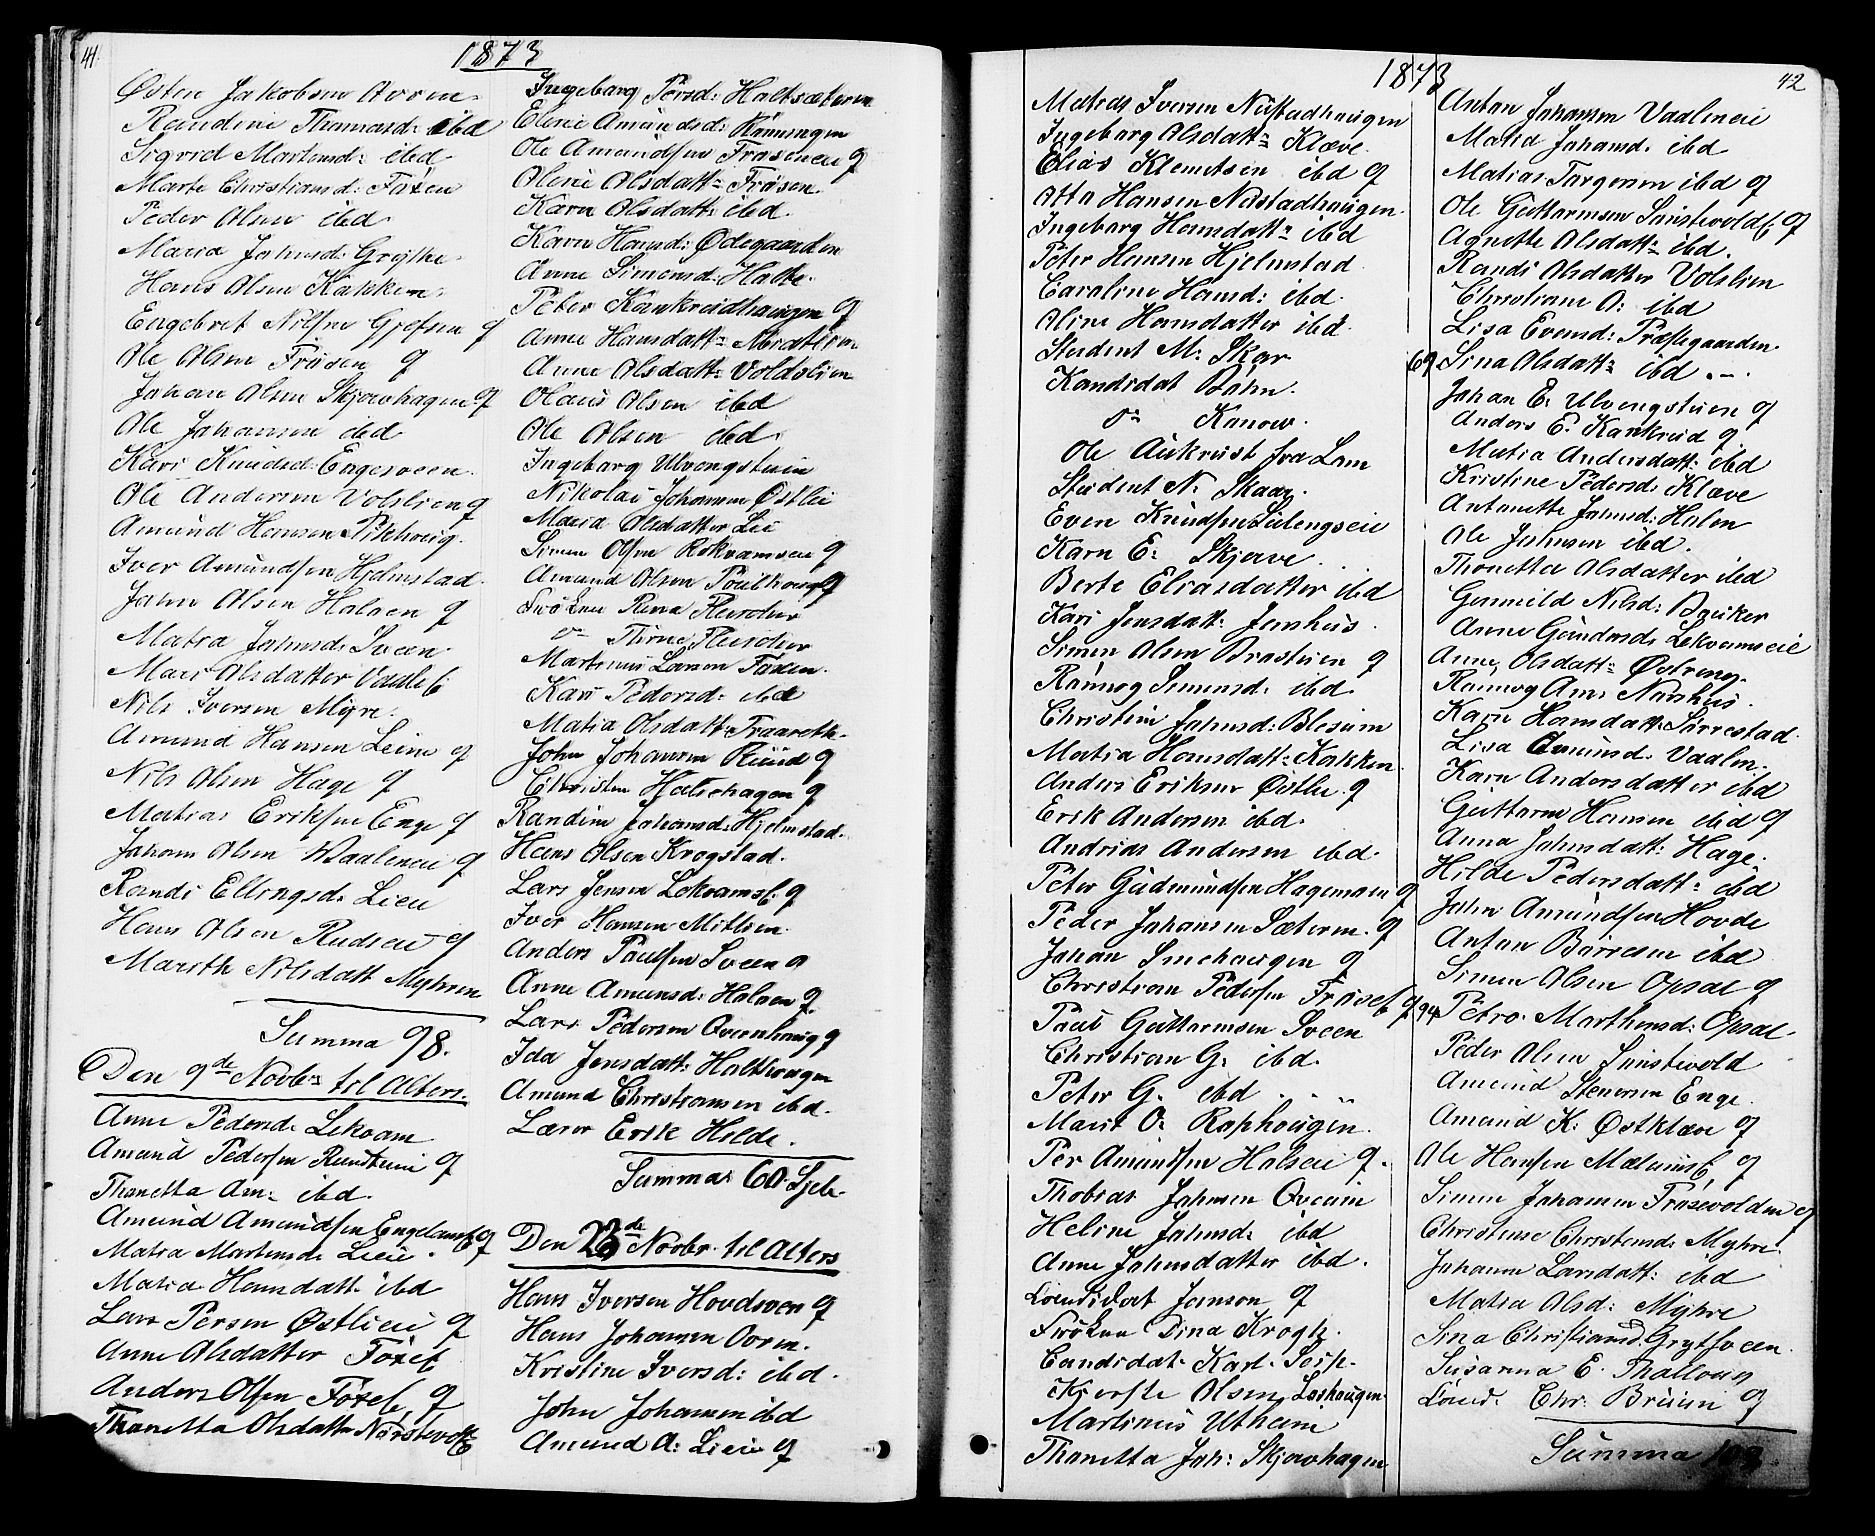 41.
1873
Østen Jakobsen Aaren.
Randine Thomasd: ibd
Sigrid Mortensd: ibd.
Marte Christiansd: Foxen
Peder Olsen ibd.
Maria Johnsd: Grytke.
Hans Olsen Kakken.
Engebret Nilsen Gjefsen og
Ole Olsen Frøsen og
Johan Olsen Skjowhagen og
Ole Johansen ibd
Kari Knudsd: Engesveen.
Ole Andersen Volslien og
Amund Hansen Pikhoug.
Iver Amundsen Hjelmstad.
John Olsen Halsen og
Matia Johnsd: Sveen.
Mari Olsdatter Vaalef
Nils Iversen Myre.
Amund Hansen Leine og
Nils Olsen Hage og
Matias Eriksen Enge og
Johan Olsen Vaalenei og
Randi Ellingsd: Lien
Hans Olsen Rudsei og
Marith Nilsdatt Myhren
Summa 98.
Den 9de Novbr til Alters.
Anne Pedersd: Lekvam
Amund Pedersen Rusteini og
Thonetta Am: ibd.
Amund Amundsen Engelands og
Matia Mortensd: Lieie.
Matia Hansdatt: ibd
Lars Persen Østlien og
Anne Olsdatter Foxef
Anders Olsen Foxef. og
Thonetta Olsdatt: Norstevold
Ingeborg Persd: Haltsæteren
Eline Amundsd: Rønningen
Ole Amundsen Frøsenei og
Oline Olsdatt: Frøsen.
Karn Olsdatt: ibd.
Karn Hansd: Ødegaarden
Anne Simensd: Halke.
Peter Kankreidhaugen og
Anne Hansdatt: Midtlien
Anne Olsdatt: Voldslien
Olaus Olsen ibd
Ole Olsen ibd.
Ingeborg Ulvengstuin
Nikolai Johansen Østlei
Maria Olsdatter Lie
Simen Olsen Rokvamsei og
Amund Olsen Poulhougf og
Frøken Runa Fleischer
do Thrine Fleischer
Martinus Larsen Foxen.
Kari Pedersd: ibd
Matia Olsdatt: Traareth.
John Johansen Ruud og
Christen Halsehagen og
Randine Johansd: Hjelmstad.
Hans Olsen Krogstad.
Lars Jensen Lekvamsf. og
Iver Hansen Mitlien.
Anders Paulsen Sveen og
Anne Amunsd: Halsen og
Lars Pedersen Oveenhaug og
Ida Jensdatt: Halthaugen
Amund Christiansen ibd.
Lærer Erik Hilde.
Summa 60 Sjele.
Den 23de Novbr. til Alters
Hans Iversen Hovdsveen og
Hans Johansen Ooren.
Kristine Iversd: ibd.
John Johansen ibd
Amund A: Lieie og
1873
42
Mateds Iversen Nustadhaugen
Ingeborg Olsdatt: Klæve.
Elias Klemetsen ibd og
Otto Hansen Nustadhaugen.
Ingeborg Hansdatt: ibd
Peter Hansen Hjelmstad
Caroline Hansd: ibd.
Oline Hansdatter ibd.
Student M: Skar
Kandidat Bøhn.
do Kanow.
Ole Aukrust fra Lom
Student N. Skaar.
Even Knudsen Lulengseie
Karn E: Skjæve.
Berte Eliasdatter ibd
Kari Jensdatt: Jenshus.
Simen Olsen Brostuen og
Rønnog Simensd: ibd.
Christine Johnsd: Blesum
Matia Hansdatt: Kakken.
Anders Eriksen Østlie. og
Erik Andersen ibd.
Andrias Andersen ibd.
Peter Gudmundsen Hagemoen og
Peder Johansen Sæteren. og
Johan Smehaugen og
Christian Pedersen Frøsef og
Paul Guttormsen Sveen
Christian G. ibd.
Peter G. ibd
Marit O: Raphougen.
Per Amundsen Halseie og.
Thobias Johnsen Oveim
Heline Johnsd: ibd
Anne Johnsdatter ibd.
Candidat Janson og
Frøken Dina Krogh.
Candidat Karl Seip.
Kjerste Olsen Loshougen
Martinus Utheim
Thonetta Joh: Skjowhagen
Anton Johansen Vaalenei
Matia Johansd. ibd
Matias Torgersen ibd og
Ole Guttormsen Snistevoldf og
Agnette Olsdatt: ibd.
Randi Olsdatter Volslien
Christiane O: ibd
Lisa Evensd: Præstegaarden.
69 Sina Olsdatt: ibd.
Johan E. Ulvengstuen og
Anders E. Kankreid og
Matia Andersdatt: ibd
Kristine Pedersd: Klæve
Antonette Johnsd: Halen
Ole Johnsen ibd.
Thonetta Olsdatter ibd
Gunnild Nilsd: Bauker
Anne Gundersd: Lekvamseie
Anne Olsdatt: Østreng.
Rønnog Am: Narshus.
Karn Hansdatt: Sørrestad.
Lisa Amunsd. Vaalen.
Karn Andersdatter ibd
Guttorm Hansen ibd og
Anna Johnsdatt: Hage.
Hilde Pedersdatt: ibd
John Amundsen Hovde
Anton Børresen ibd
Simen Olsen Opsal og
94 Petro. Marthensd: Opsal.
Peder Olsen Snistevold
Amund Stenersen Enge.
Amund K: Østklæve og
Ole Hansen Mælumsf og
Simen Johansen Frøsevolden og
Christense Christensd: Myhre.
Johanne Larsdatt: ibd
Matia Olsd: Myhre
Sina Christiansd: Grytsveen.
Susanna E. Thalloug
Cand. Chr. Bruun og
Summa 103.